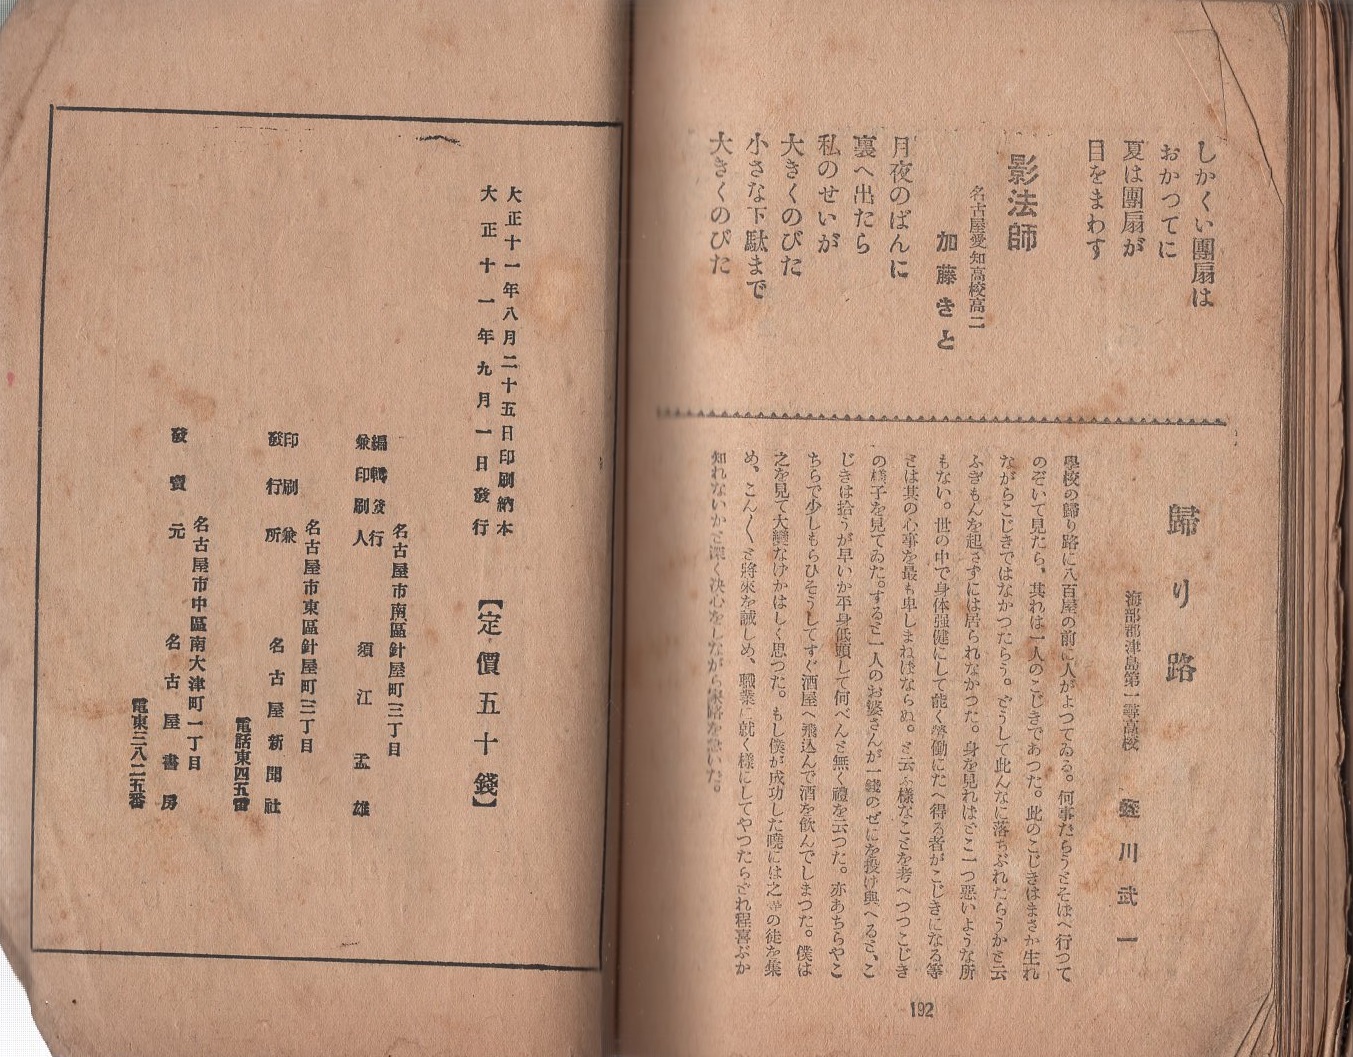 しかくい團扇は
おかつてに
夏は團扇が
目をまわす
影法師
名古屋愛知高校高二
加藤きと
月夜のばんに
裏へ出たら
私のせいが
大きくのびた
小さな下駄まで
大きくのびた
歸り路
海部郡津島第一尋高校
川武一
學校の歸り路に八百屋の前に人がよつてゐる。何事だらうとそばへ行つて
のぞいて見たら、其れは一人のこじきであつた。此のこじきはまさか生れ
ながらこじきではなかつたらう。どうして此んなに落ちぶれたらうかと云
ふぎもんを起さずには居られなかつた。身を見ればどこ一つ悪いような所
もない。世の中で身体强健にして能く勞働にたへ得る者がこじきになる等
とは其の心事を最も卑しまねばならぬ。と云ふ様なことを考へつつこじき
の様子を見てゐた。すると一人のお婆さんが一錢のぜにを投げ與へると、こ
じきは拾うが早いか平身低頭して何べんと無く禮を云つた。亦あちらやこ
ちらで少しもらひそうしてすぐ酒屋へ飛込んで酒を飲んでしまつた。僕は
之を見て大變なげかはしく思つた。もし僕が成功した曉には之等の徒を集
め、こん〳〵と將來を誡しめ、職業に就く様にしてやつたらどれ程喜ぶか
知れないかと深く決心をしながら家路を急いだ。
192
大正十一年八月二十五日印刷納本
大正十一年九月一日發行
【定價五十錢】
名古屋市南區針屋町三丁目
編輯發行
兼印刷人
須江孟雄
名古屋市東區針屋町三丁目
印刷兼
發行所
名古屋新聞社
電話東四五番
名古屋市中區南大津町一丁目
發賣元
名古屋書房
電東三八二五番